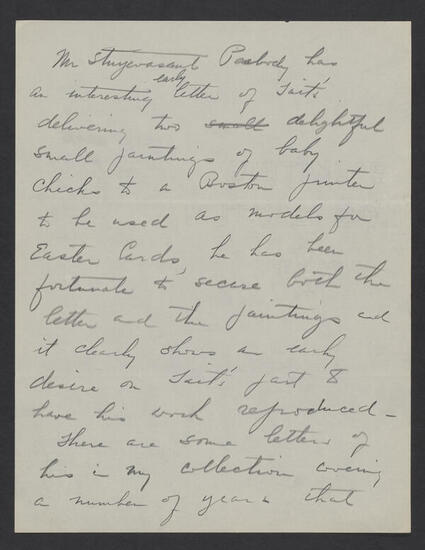 Mr Stuyvesant Peabody has
an interesting early letter of Tait's
delivering two small delightful
small paintings of baby
chicks to a Boston printer
to be used as models for
Easter Cards, he has been
fortunate to secure both the
letter and the paintings and
it clearly shows an early
desire on Tait's part to
have his work reproduced -
There are some letters of
his in my collection covering
a number of years that